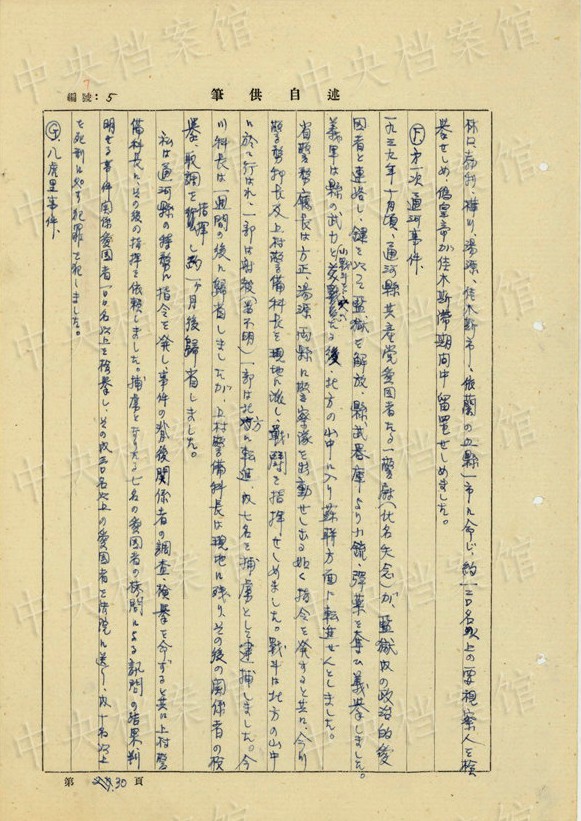 述自供筆
編號：5
林口、勃利、樺川、湯原、佳木斯市、依蘭の五縣一市に命じ、約一二〇名以上の要視察人を検
挙せしめ、偽皇帝が佳木斯滞期間中留置せしめました。
(F) 第一次通河事件、
一九三九年十月頃、通河縣共産党愛国者たる一警尉(化名失念)が、監獄内の政治的愛
国者と連絡し、鍵を以て監獄を解放、縣武器庫より小銃、弾薬を奪ひ義挙しました。
義軍は縣の武力と 後、北方の山中に入り蘇聯方面に転進せんとしました。
省警務廳長は方正、湯源両縣に警察隊を出動せしむる如く指令を発すると共に、今川
警務科長及上村警備科長を現地に派し、戦闘を指揮せしめました。戦斗は北方の山中
に於て行はれ、一部は射殺(名不明)一部は北方に転進、内七名を捕虜として逮捕しました。今
川科長は一週間の後に帰省しましたが、上村警備科長は現地に残り、その後の関係者の検
挙、取調を指揮し約一ヶ月後歸省しました。
私は通河縣の特務に指令を発し、事件の背後関係者の調査、検挙を命ずると共に上村警
備科長に、その後の指揮を依頼しました。捕虜となりたる七名の愛国者の拷問による訊問の結果判
明せる事件関係愛国者一〇〇名以上を検挙し、その内三〇名以上の愛国者を法院に送り、内十名以上
を死刑に処す犯罪を犯しました。
八虎里事件、
第 30 頁
中央档案馆